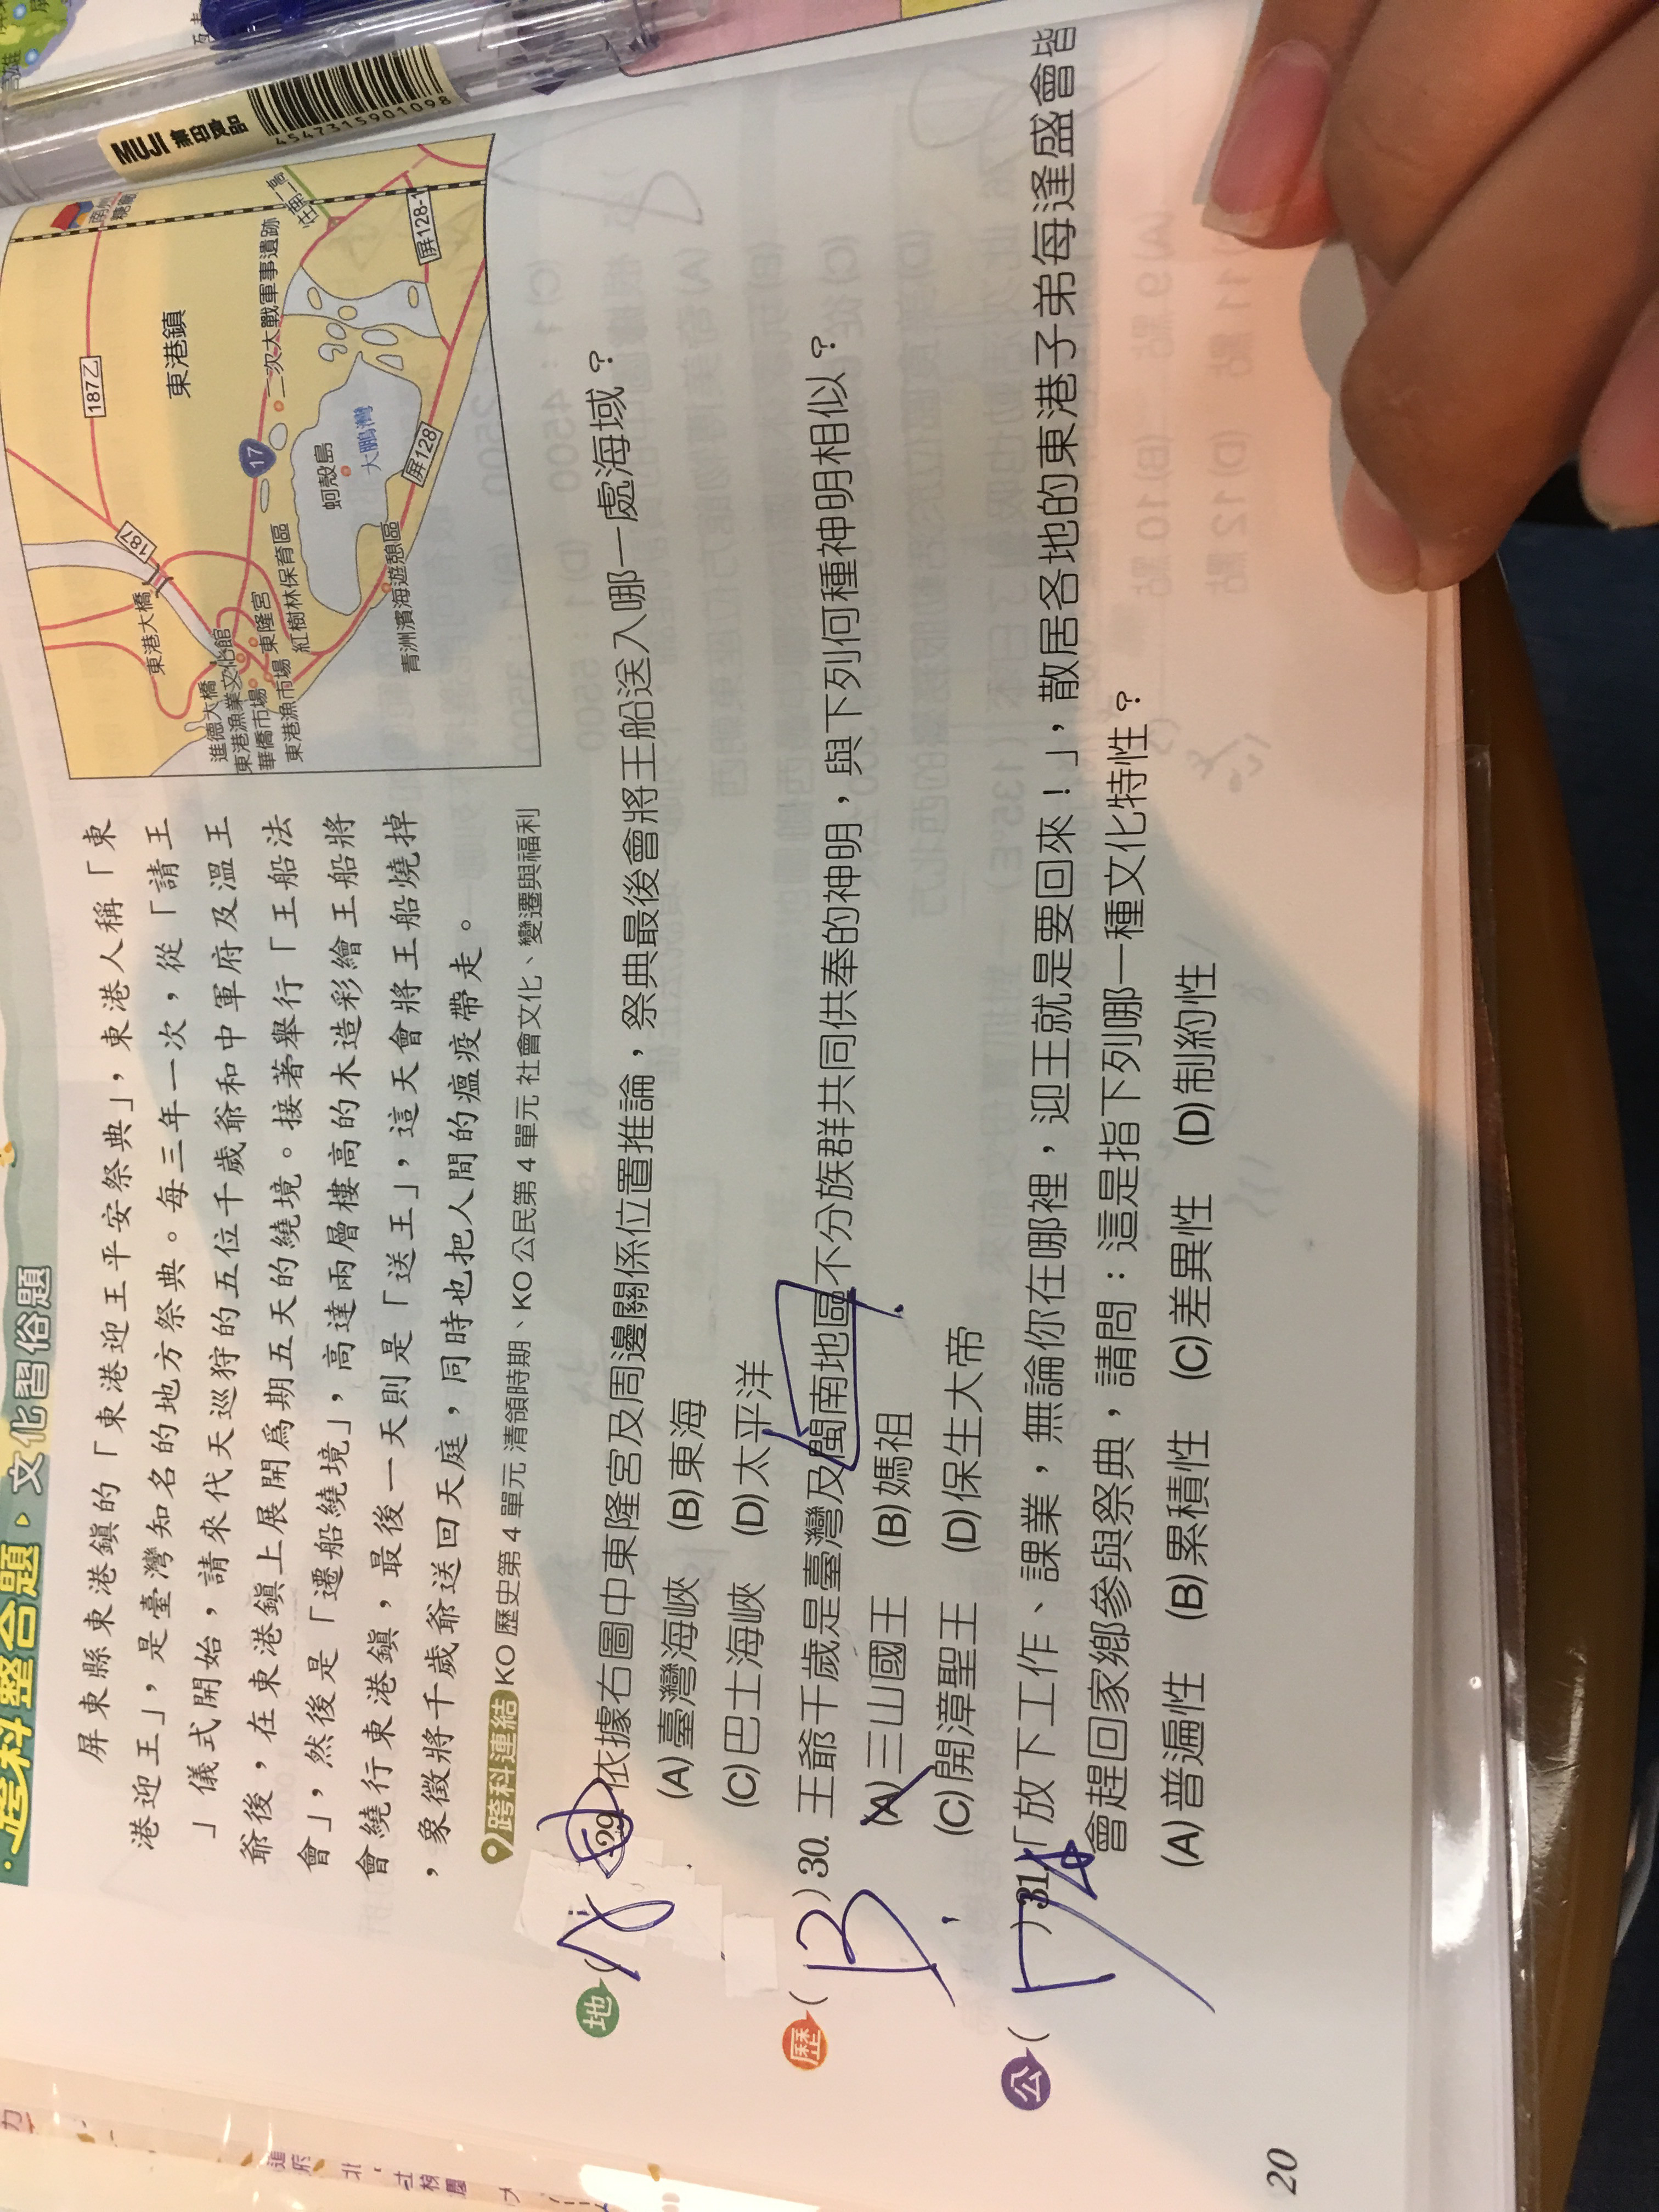 跨科整合題 文化習俗題
屏東縣東港鎮的「東港迎王平安祭典」，東港人稱「東
港迎王」，是臺灣知名的地方祭典。每三年一次，從「請王
」儀式開始，請來代天巡狩的五位千歲爺和中軍府及溫王
爺後，在東港鎮上展開為期五天的繞境。接著舉行「王船法
會」，然後是「遷船繞境」，高達兩層樓高的木造彩繪王船將
會繞行東港鎮，最後一天則是「送王」，這天會將王船燒掉
，象徵將千歲爺送回天庭，同時也把人間的瘟疫帶走。
跨科連結 KO 歷史第 4 單元 清領時期、KO 公民第 4 單元 社會文化、變遷與福利
187乙
東港鎮
187
東港大橋
17
二次大戰軍事遺跡
進德大橋
東港漁業文化館
華僑市場
東港漁市場
東隆宮
紅樹林保育區
蚵殼島
大鵬灣
屏128
屏128-1
青洲濱海遊憩區
MUJI 無印良品
4547315901098
地 ( 29.依據右圖中東隆宮及周邊關係位置推論，祭典最後會將王船送入哪一處海域？
(A)臺灣海峽 (B)東海
(C)巴士海峽 (D)太平洋
歷 ( B ) 30. 王爺千歲是臺灣及閩南地區不分族群共同供奉的神明，與下列何種神明相似？
(A)三山國王 (B)媽祖
(C)開漳聖王 (D)保生大帝
公 ( ) 31.「放下工作、課業，無論你在哪裡，迎王就是要回來！」，散居各地的東港子弟每逢盛會皆
會趕回家鄉參與祭典，請問：這是指下列哪一種文化特性？
(A)普遍性 (B)累積性 (C)差異性 (D)制約性
20